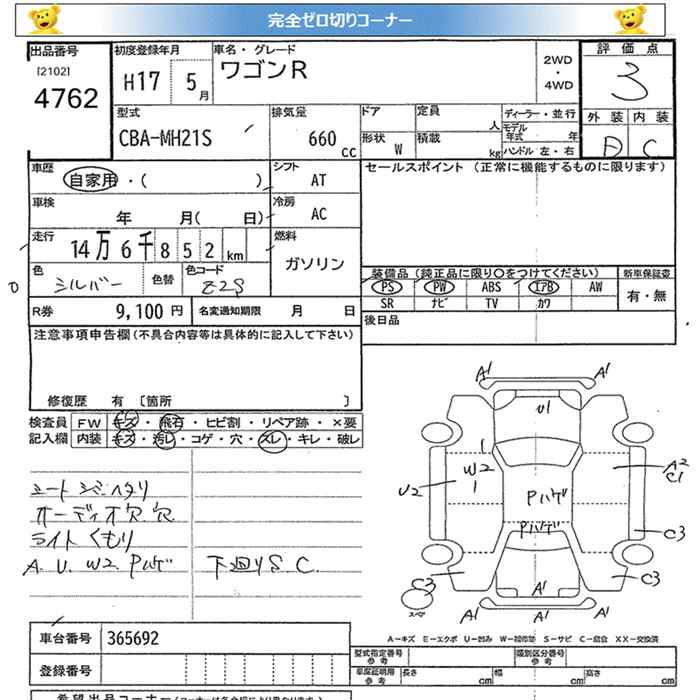 完全ゼロ切りコーナー
出品番号
[2102]
4762
初度登録年月
H17 5月
車名・グレード
ワゴンR
2WD
・
4WD
評価点
3
外装 内装
D C
型式
CBA-MH21S
排気量
660
cc
ドア
定員
人
形状
W
積載
kg
ディーラー・並行
モデル
年式 年
ハンドル 左・右
車歴
自家用・( )
シフト
AT
セールスポイント (正常に機能するものに限ります)
車検
年 月( 日)
冷房
AC
走行
14万6千852 km
燃料
ガソリン
色
シルバー
色替
色コード
Z2S
装備品 (純正品に限り○をつけてください)
新車保証書
PS PW ABS エアB AW
有・無
SR ナビ TV カワ
R券
9,100 円
名変通知期限 月 日
後日品
注意事項申告欄(不具合内容等は具体的に記入して下さい)
修復歴 有 〔箇所 〕
検査員
記入欄
FW キズ・飛石・ヒビ割・リペア跡・×要
内装 キズ・汚レ・コゲ・穴・スレ・キレ・破レ
A1 A1
U1
1
W2
1
U2
Pハゲ
Pハゲ
A2
C1
C3
C3
C3
A1
A1 A1 A1
シートシミ・ヘタリ
オーディオ欠 穴
ライトくもり
A. U. W2. Pハゲ 下回りS. C.
A-キズ E-エクボ U-凹み W-補修跡 S-サビ C-腐食 XX-交換済
車台番号
365692
登録番号
型式指定番号
参考
類別区分番号
参考
車庫証明用
参考
長さ cm 幅 cm 高さ cm
希望出品コーナー